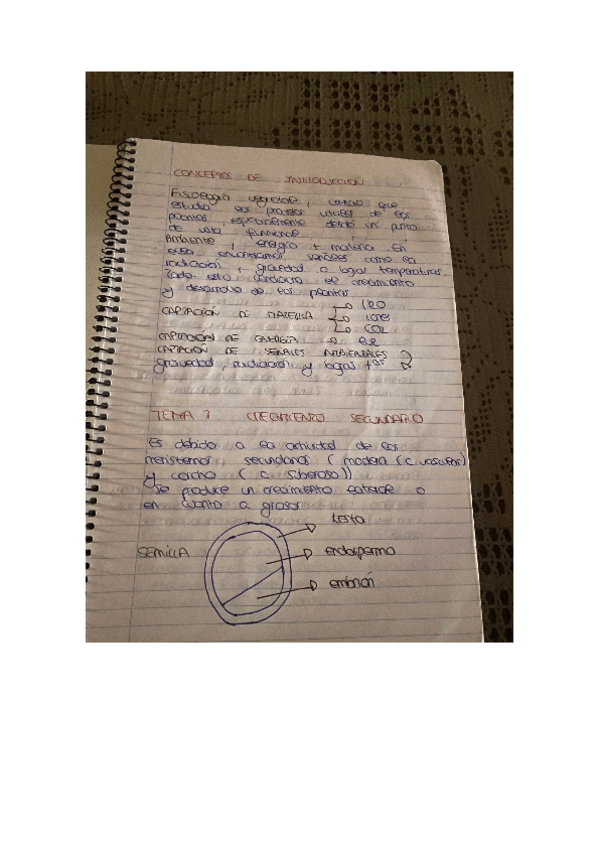 CONCEPTOS DE INTRODUCCION
Fisiología vegetal, ciencia que
estudia los procesos vitales de las
plantas, especialmente desde un punto
de vista funcional.
Ambiente, energía + materia. En
ella encontramos señales como la
radiación, gravedad o logas temperaturas.
Todo esto conduce al crecimiento
y desarrollo de las plantas
CAPTACIÓN DE MATERIA → H2O
→ iones
→ CO2
CAPTACIÓN DE ENERGÍA → luz
CAPTACIÓN DE SEÑALES AMBIENTALES
gravedad, radiación y logas tªs
TEMA 7. CRECIMIENTO SECUNDARIO
Es debido a la actividad de los
meristemos secundarios (madera (c. vascular)
y corcho (c. suberoso))
Se produce un crecimiento lateral o
en cuanto a grosor
testa
SEMILLA
endospermo
embrión